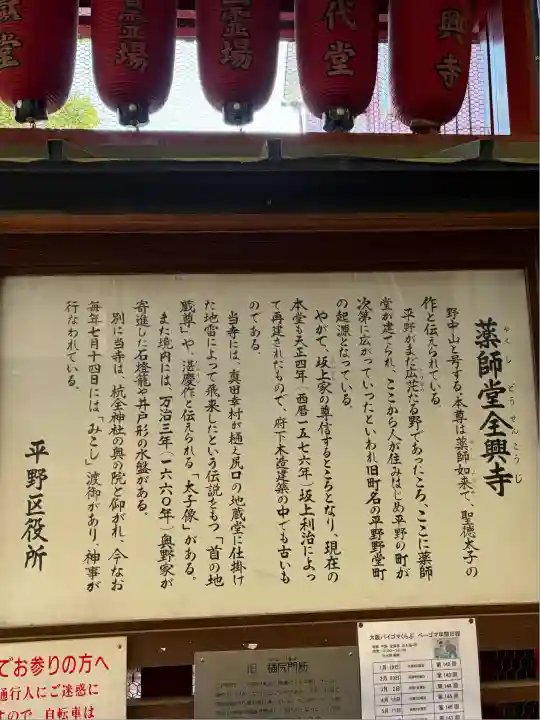 興寺
代堂
霊場
霊場
蔵堂
薬師堂全興寺
やくし どう せんこうじ
野中山と号する。本尊は薬師如来で、聖徳太子の
作と伝えられている。
平野がまだ広茫たる野であったころ、ここに薬師
堂が建てられ、ここから人が住みはじめ平野の町が
次第に広がっていったといわれ旧町名の平野野堂町
の起源となっている。
やがて、坂上家の尊信するところとなり、現在の
本堂も天正四年(西暦一五七六年)坂上利治によっ
て再建されたもので、府下木造建築の中でも古いも
のである。
当寺には、真田幸村が樋え尻口の地蔵堂に仕掛け
た地雷によって飛来したという伝説をもつ「首の地
蔵尊」や、湛慶作と伝えられる「太子像」がある。
また境内には、万治三年(一六六〇年)奥野家が
寄進した石燈籠や井戸形の水盤がある。
別に当寺は、杭全神社の奥の院と仰がれ、今なお
毎年七月十四日には「みこし」渡御があり、神事が
行なわれている。
平野区役所
でお参りの方へ
通行人にご迷惑に
ので、自転車は
旧 樋尻門跡
大阪バイゴマくらぶ ベーゴマ年間日程